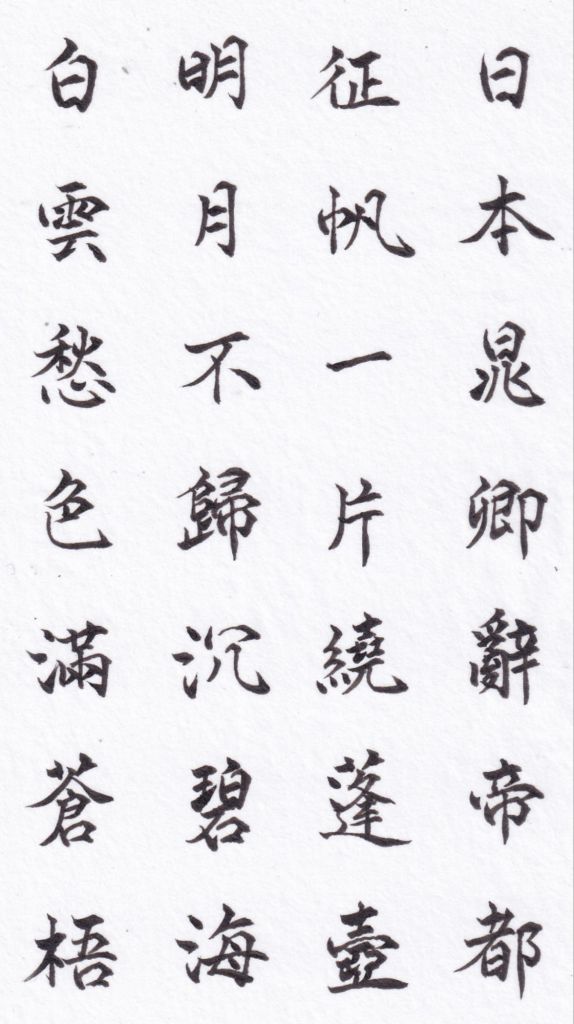 日本晁卿辭帝都
征帆一片繞蓬壺
明月不歸沉碧海
白雲愁色滿蒼梧